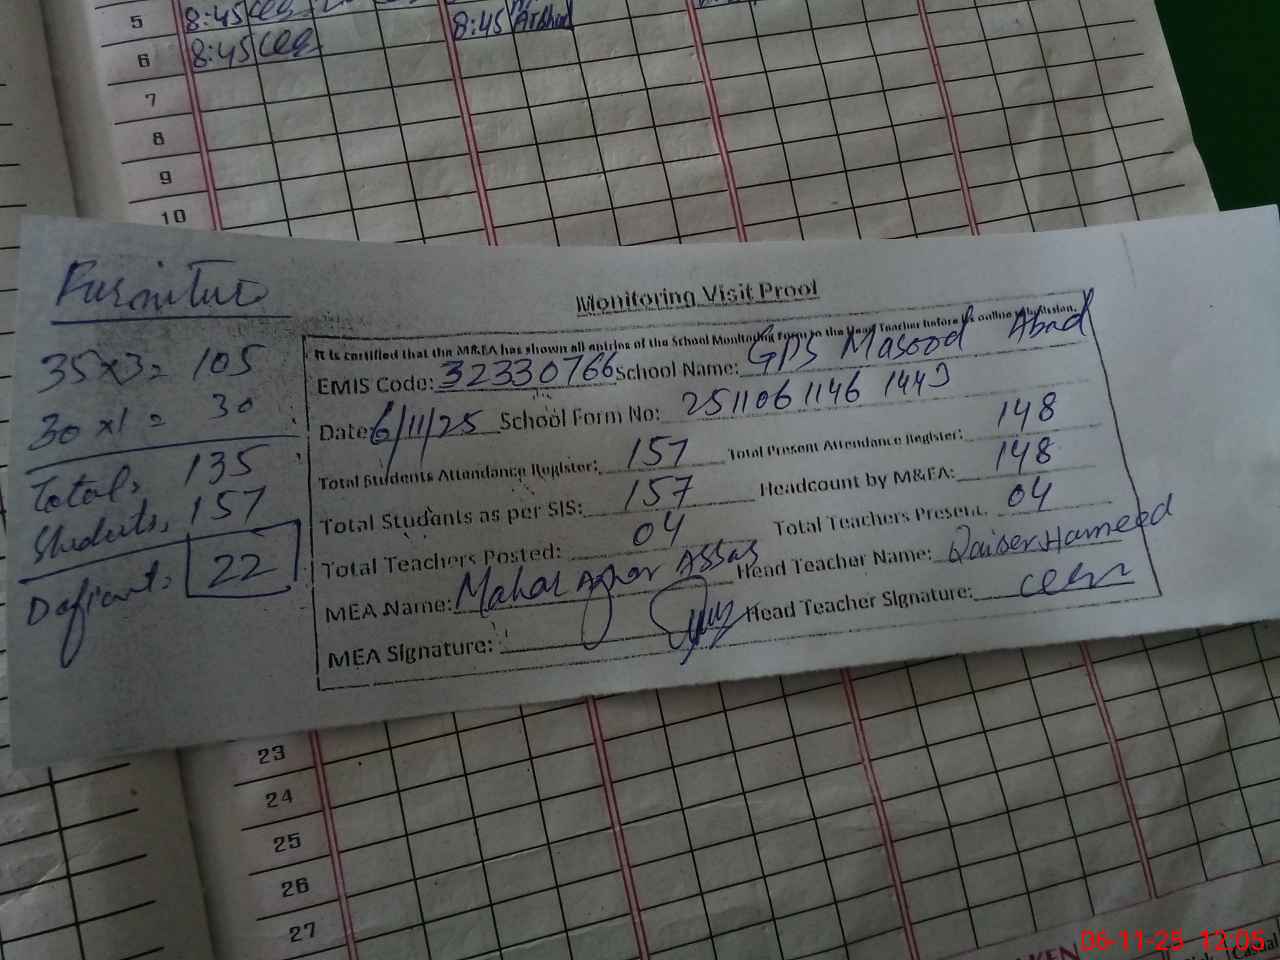 5 8:45 8:45 Arshad
6 8:45
7
8
9
10
Furniture
35x3= 105
30x1= 30
Total, 135
Students, 157
Deficient, 22
Monitoring Visit Proof
It is certified that the M&EA has shown all entries of the School Monitoring Form to the Head Teacher before its online submission.
EMIS Code: 32330766 School Name: GPS Masood Abad
Date: 6/11/25 School Form No: 2511061146 1443
Total Students Attendance Register: 157 Total Present Attendance Register: 148
Total Students as per SIS: 157 Headcount by M&EA: 148
Total Teachers Posted: 04 Total Teachers Present: 04
MEA Name: Mahar Head Teacher Name: Qaiser Hameed
MEA Signature: Head Teacher Signature:
23
24
25
26
27
06-11-25 12:05